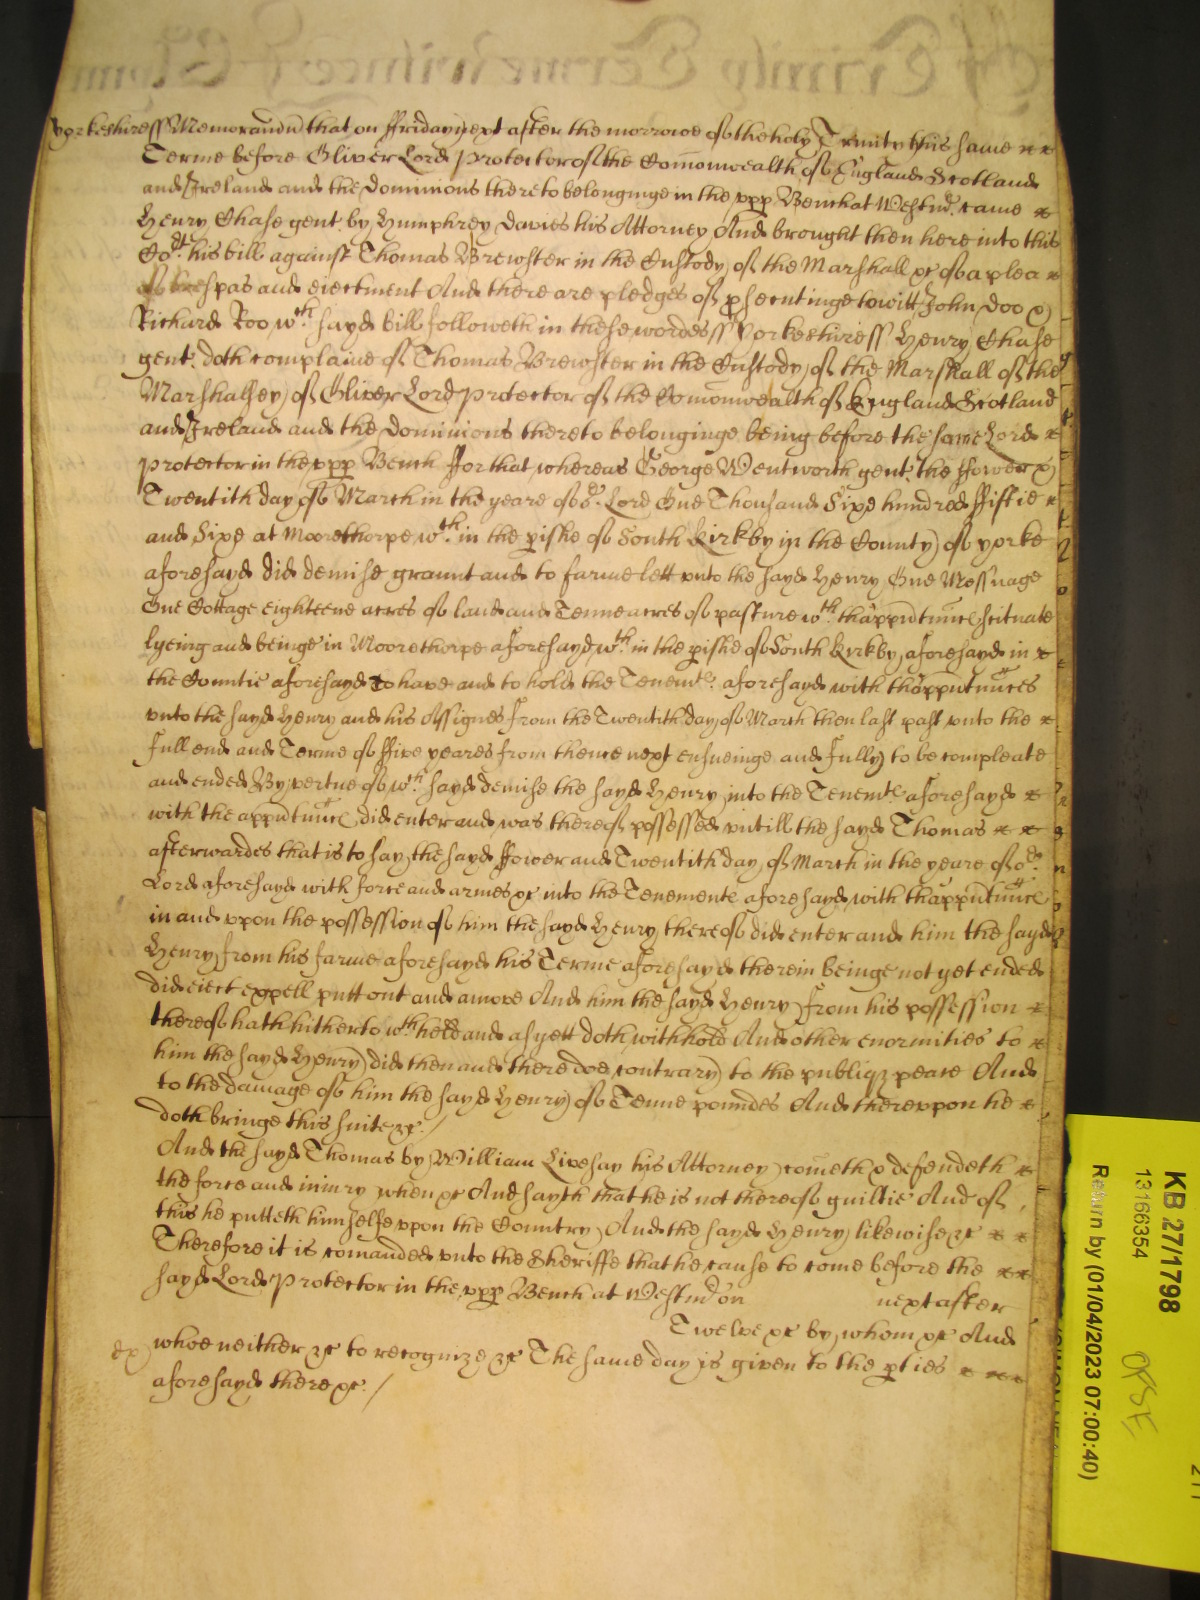 Yorkeshire ss Memorandu that on ffriday next after the morrowe of the holy Trinity this same
Terme before Oliver Lord Protector of the Comonwealth of England Scotland
and Ireland and the Dominions thereto belonginge in the upp Bench at Westmr came
Henry Chase gent by Humphrey Davies his Attorney And brought then here into this
Cort his bill against Thomas Brewster in the Custody of the Marshall &c of a plea
of trespas and eiectment And there are pledges of psecutinge to witt John Doo &
Richard Roo wch sayd bill followeth in these wordes ss Yorkeshire ss Henry Chase
gent doth complaine of Thomas Brewster in the Custody of the Marshall of the
Marshalsey of Oliver Lord Protector of the Comonwealth of England Scotland
and Ireland and the Dominions thereto belonginge being before the same Lord
Protector in the upp Bench ffor that whereas George Wentworth gent the ffower &
Twentith day of March in the yeare of or Lord One Thousand Sixe hundred ffiftie
and Sixe at Moorethorpe wthin the pishe of South Kirkby in the County of Yorke
aforesayd did demise graunt and to farme lett unto the sayd Henry One Messuage
One Cottage eighteene acres of land and Tenne acres of pasture wth thapputnnces scituate
lyeing and beinge in Moorethorpe aforesayd wthin the pishe of South Kirkby aforesayd in
the Countie aforesayd To have and to hold the Tenemts aforesayd with thapputnnces
unto the sayd Henry and his Assignes from the Twentith day of March then last past unto the
full end and Terme of ffive yeares from thence next ensueinge and fully to be compleate
and ended By vertue of wch sayd demise the sayd Henry into the Tenemts aforesayd
with the apputnnces did enter and was thereof possessed untill the sayd Thomas
afterwardes that is to say the sayd ffower and Twentith day of March in the yeare of or
Lord aforesayd with force and armes &c into the Tenements aforesayd with thapputnnces
in and uppon the possession of him the sayd Henry thereof did enter and him the sayd
Henry from his farme aforesayd his Terme aforesayd therein beinge not yet ended
did eiect expell putt out and amove And him the sayd Henry from his possession
thereof hath hitherto wthheld and as yett doth withhold And other enormities to
him the sayd Henry did then and there doe contrary to the publiq peace And
to the damage of him the sayd Henry of Tenne poundes And thereuppon he
doth bringe this suite &c /
And the sayd Thomas by William Livesay his Attorney cometh & defendeth
the force and iniury when &c And sayth that he is not thereof guiltie And of
this he putteth himselfe uppon the Country And the sayd Henry likewise &c
Therefore it is comanded unto the Sheriffe that he cause to come before the
sayd Lord Protector in the upp Bench at Westmr on next after
Twelve &c by whom &c And
ex whoe neither &c to recognize &c The same day is given to the pties
aforesayd there &c /
KB 27/1798
13166354
Return by (01/04/2023 07:00:40)